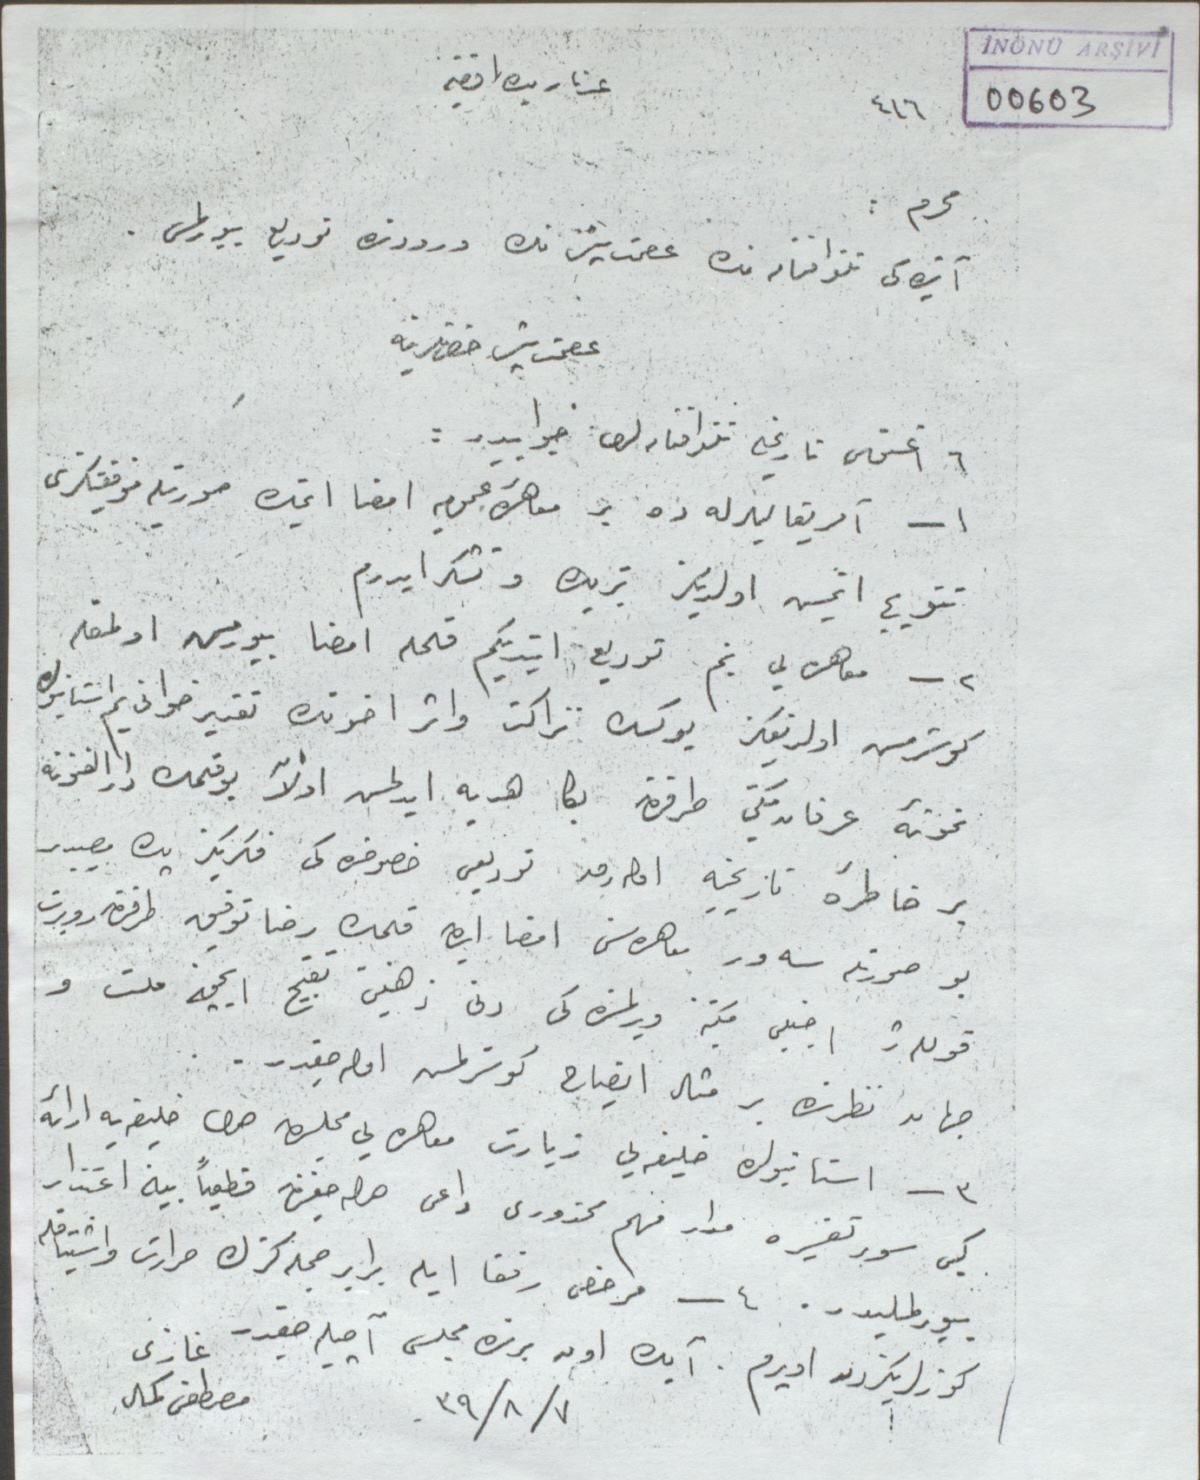 İNÖNÜ ARŞİVİ
00603
٤١٦
محرم :
آتیده‌كی تلغرافنامه‌نك عصمت پاشانك ورودنده تودیع بیورلمسی .
عصمت پاشا حضرتلرینه
٦ اغستوس تاریخلی تلغرافنامه‌لری جوابیدر :
١ — آمریقالیلرله ده بر معاهدهٔ عمومیه امضا ایتمك صورتیله موفقیتكزی
تتویج ایتمش اولدیغكز تبریك و تشكر ایدرم
٢ — معاهده‌یی بنم تودیع ایتدیكم قلمله امضا بیورمش اولمقله
كوسترمش اولدیغكز یوكسك نزاكت واثر اخوتك تقدیرخوانی‌یم استانبولده
نمونهٔ عرفان مكتبی طرفندن بكا هدیه ایدلمش اولان بو قلمك دارالفنونه
بر خاطرهٔ تاریخیه اوله‌رق تودیعی خصوصنده‌كی فكریكز پك مصیبدر
بو صورتله سه‌ور معاهده‌سنی امضا ایدن قلمك رضا توفیق طرفندن روبرت
قوله‌ژ اجنبی مكتبنه ویرلمسنده‌كی دنی ذهنیتی تقبیح ایچون ملت و
جهان نظرنده بر مثال ایضاح كوسترلمش اوله‌جقدر .
٣ — استانبولده خلیفه‌یی زیارت معاهده‌یی مجلسدن اول خلیفه‌یه ارائه
كبی سوء تفسیره مدار مهم محذوری داعی اوله‌جغندن قطعیاً بیان اعتذار
بیورلملیدر . ٤ — مرخص رفقا ایله برابر جمله‌كزك حرارت واشتیاقله
كوزلریكزدن اوپرم . آیك اون برنده مجلس آچیله‌جقدر
غازی
مصطفی كمال
٧/٨/٣٩